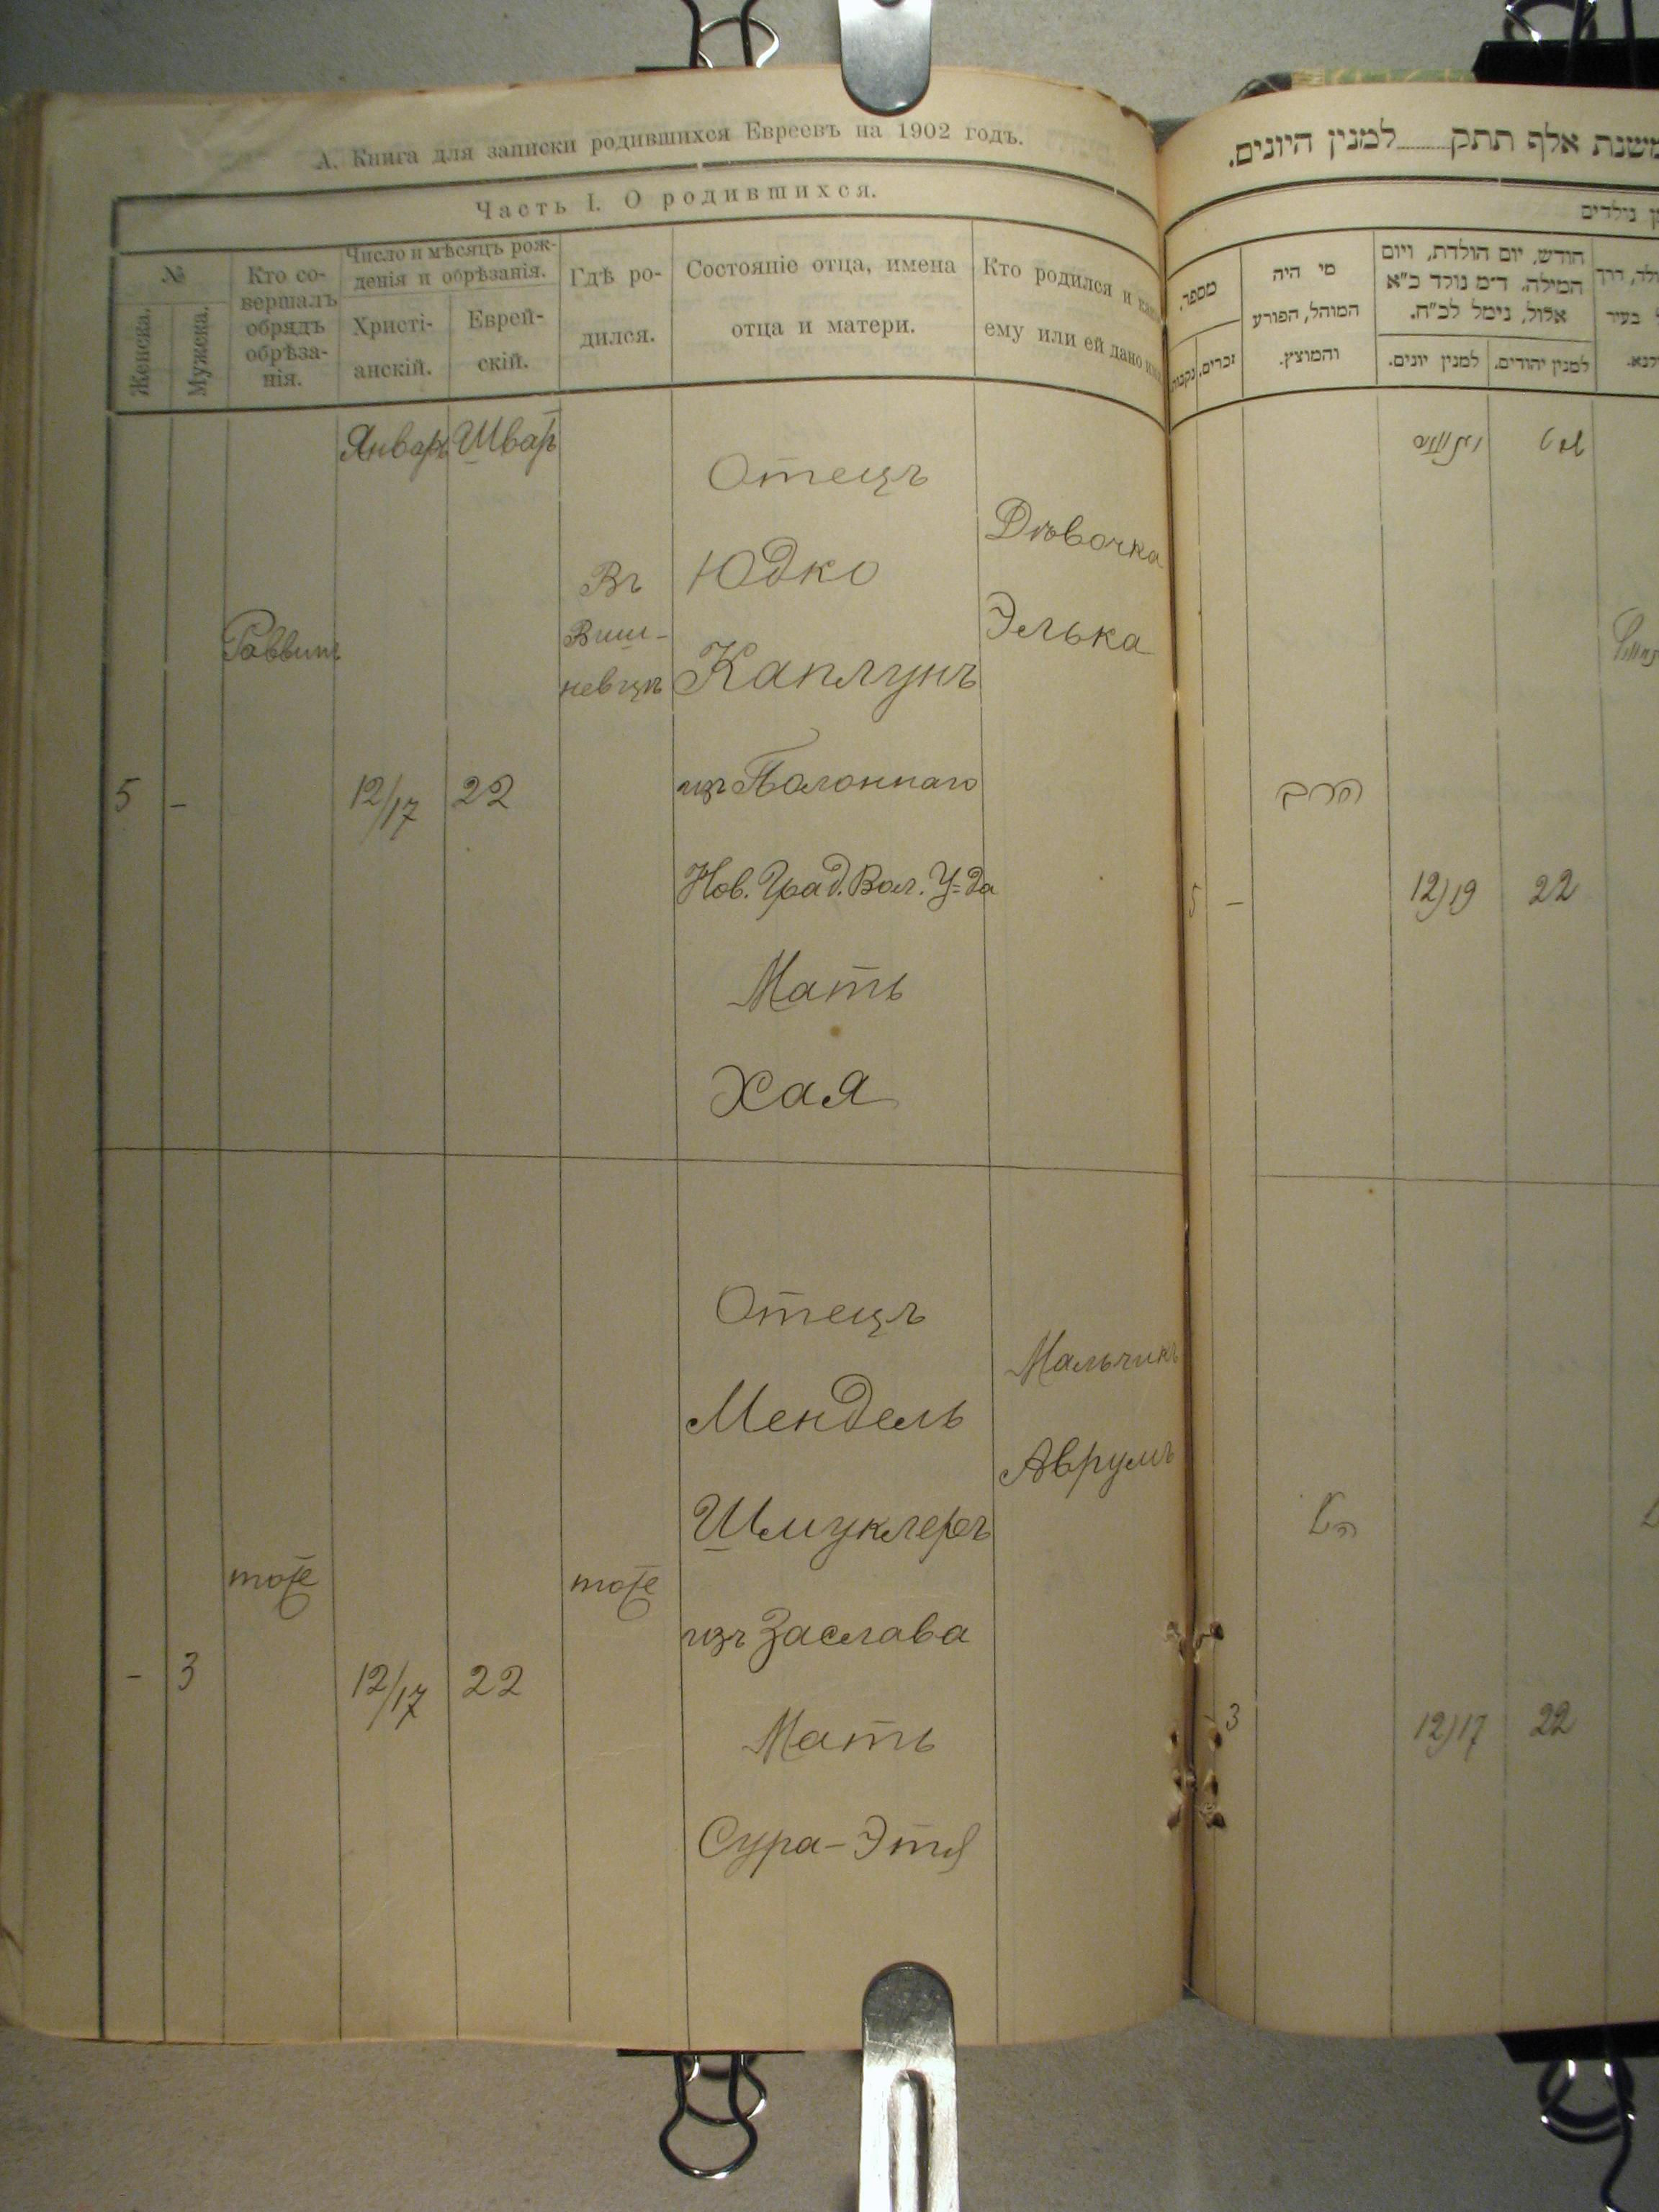 А. Книга для записки родившихся Евреевъ на 1902 годъ.
Часть I. О родившихся.
№
Женска.
Мужска.
Кто со-
вершалъ
обрядъ
обрѣза-
нія.
Число и мѣсяцъ рож-
денія и обрѣзанія.
Христі-
анскій.
Еврей-
скій.
Гдѣ ро-
дился.
Состояніе отца, имена
отца и матери.
Кто родился и
ему или ей дано
Январь
Шватъ
5
-
Раввинъ
12/17
22
Въ
Виш-
невцѣ
Отецъ
Юдко
Каплунъ
изъ Полоннаго
Нов. Град. Вол. У=да
Мать
Хая
Дѣвочка
Элька
-
3
тоже
12/17
22
тоже
Отецъ
Мендель
Шмуклеръ
изъ Заслава
Мать
Сура-Этя
Мальчикъ
Аврумъ
משנת אלף תתק למנין היונים.
נולדים
מספר.
זכרים.
מי היה
המוהל, הפורע
והמוצץ.
חודש, יום הולדת, ויום
המילה. ד"מ נולד כ"א
אלול, נימל לכ"ח.
למנין יונים.
למנין יהודים.
בעיר
5
-
הרב
12/19
22
3
12/17
22